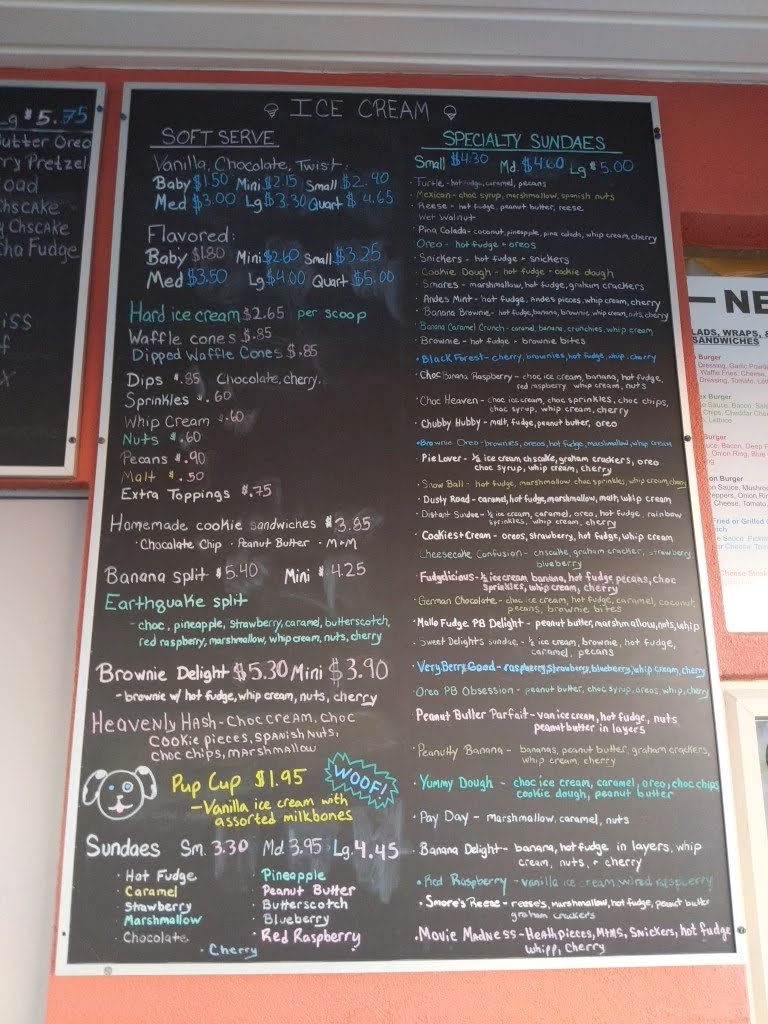 Lg $5.75
utter Oreo
ry Pretzel
oad
ChsCAke
ChsCake
Cha Fudge
iss
f
ICE CREAM
SOFT SERVE
Vanilla, Chocolate, Twist:
Baby $1.50 Mini $2.15 Small $2.40
Med $3.00 Lg $3.30 Quart $4.65
Flavored:
Baby $1.80 Mini $2.60 Small $3.25
Med $3.50 Lg $4.00 Quart $5.00
Hard ice cream $2.65 per scoop
Waffle cones $.85
Dipped Waffle Cones $.85
Dips $.85 Chocolate, cherry,
Sprinkles $.60
Whip Cream $.60
Nuts $.60
Pecans $.90
Malt $.50
Extra Toppings $.75
Homemade cookie sandwiches $3.85
· Chocolate Chip · Peanut Butter · M+M
Banana split $5.40 Mini $4.25
Earthquake split
- choc, pineapple, strawberry, caramel, butterscotch,
red raspberry, marshmallow, whip cream, nuts, cherry
Brownie Delight $5.30 Mini $3.90
- brownie w/ hot fudge, whip cream, nuts, cherry
Heavenly Hash - Choc cream, choc
cookie pieces, spanish nuts,
choc chips, marshmallow
Pup Cup $1.95
WOOF!
- Vanilla ice cream with
assorted milkbones
Sundaes Sm. 3.30 Md. 3.95 Lg. 4.45
· Hot Fudge
· Caramel
· Strawberry
· Marshmallow
· Chocolate
· Pineapple
· Peanut Butter
· Butterscotch
· Blueberry
· Red Raspberry
· Cherry
SPECIALTY SUNDAES
Small $4.30 Md. $4.60 Lg $5.00
· Turtle - hot fudge, caramel, pecans
· Mexican - choc syrup, marshmallow, spanish nuts
· Reese - hot fudge, peanut butter, reese
· Wet Walnut
· Pina Colada - coconut, pineapple, pina colada, whip cream, cherry
· Oreo - hot fudge + oreos
· Snickers - hot fudge + snickers
· Cookie Dough - hot fudge - cookie dough
· Smores - marshmallow, hot fudge, graham crackers
· Andes Mint - hot fudge, Andes pieces, whip cream, cherry
· Banana Brownie - hot fudge, banana, brownie, whip cream, nuts, cherry
· Banana Caramel Crunch - caramel, banana, crunchies, whip cream
· Brownie - hot fudge + brownie bites
· Black Forest - cherry, brownies, hot fudge, whip, cherry
· Choc Banana Raspberry - choc ice cream, banana, hot fudge,
red raspberry, whip cream, nuts
· Choc Heaven - choc ice cream, choc sprinkles, choc chips,
choc syrup, whip cream, cherry
· Chubby Hubby - malt, fudge, peanut butter, oreo
· Brownie Oreo - brownies, oreos, hot fudge, marshmallow, whip cream
· Pie Lover - 1/2 ice cream chscake, graham crackers, oreo
choc syrup, whip cream, cherry
· Snow Ball - hot fudge, marshmallow choc sprinkles, whip cream, cherry
· Dusty Road - caramel, hot fudge, marshmallow, malt, whip cream
· Distant Sundae - 1/2 ice cream, caramel, oreo, hot fudge rainbow
sprinkles, whip cream, cherry
· Cookies + Cream - oreos, strawberry, hot fudge, whip cream
Cheesecake Confusion - chscake, graham cracker, strawberry
blueberry
· Fudgelicious - 1/2 ice cream banana, hot fudge, pecans, choc
sprinkles, whip cream, cherry
· German Chocolate - choc ice cream, hot fudge, caramel, coconut,
pecans, brownie bites
· Mallo Fudge PB Delight - peanut butter, marshmallow, nuts, whip
· Sweet Delights Sundae - 1/2 ice cream, brownie, hot fudge,
caramel, pecans
· Very Berry Good - raspberry, strawberry, blueberry, whip cream, cherry
· Oreo PB Obsession - peanut butter, choc syrup, oreos, whip, cherry
Peanut Butter Parfait - van ice cream, hot fudge, nuts
peanut butter in layers
· Peanutty Banana - bananas, peanut butter, graham crackers,
whip cream, cherry
· Yummy Dough - choc ice cream, caramel, oreo, choc chips
cookie dough, peanut butter
· Pay Day - marshmallow, caramel, nuts
· Banana Delight - banana, hot fudge in layers, whip
cream, nuts, + cherry
· Red Raspberry - vanilla ice cream w/ red raspberry
· Smore's Reese - reese's, marshmallow, hot fudge, peanut butter
graham crackers
· Movie Madness - Heath pieces, M+Ms, Snickers, hot fudge
whipp, cherry
NE
LADS, WRAPS, &
SANDWICHES
Burger
Burger
Burger